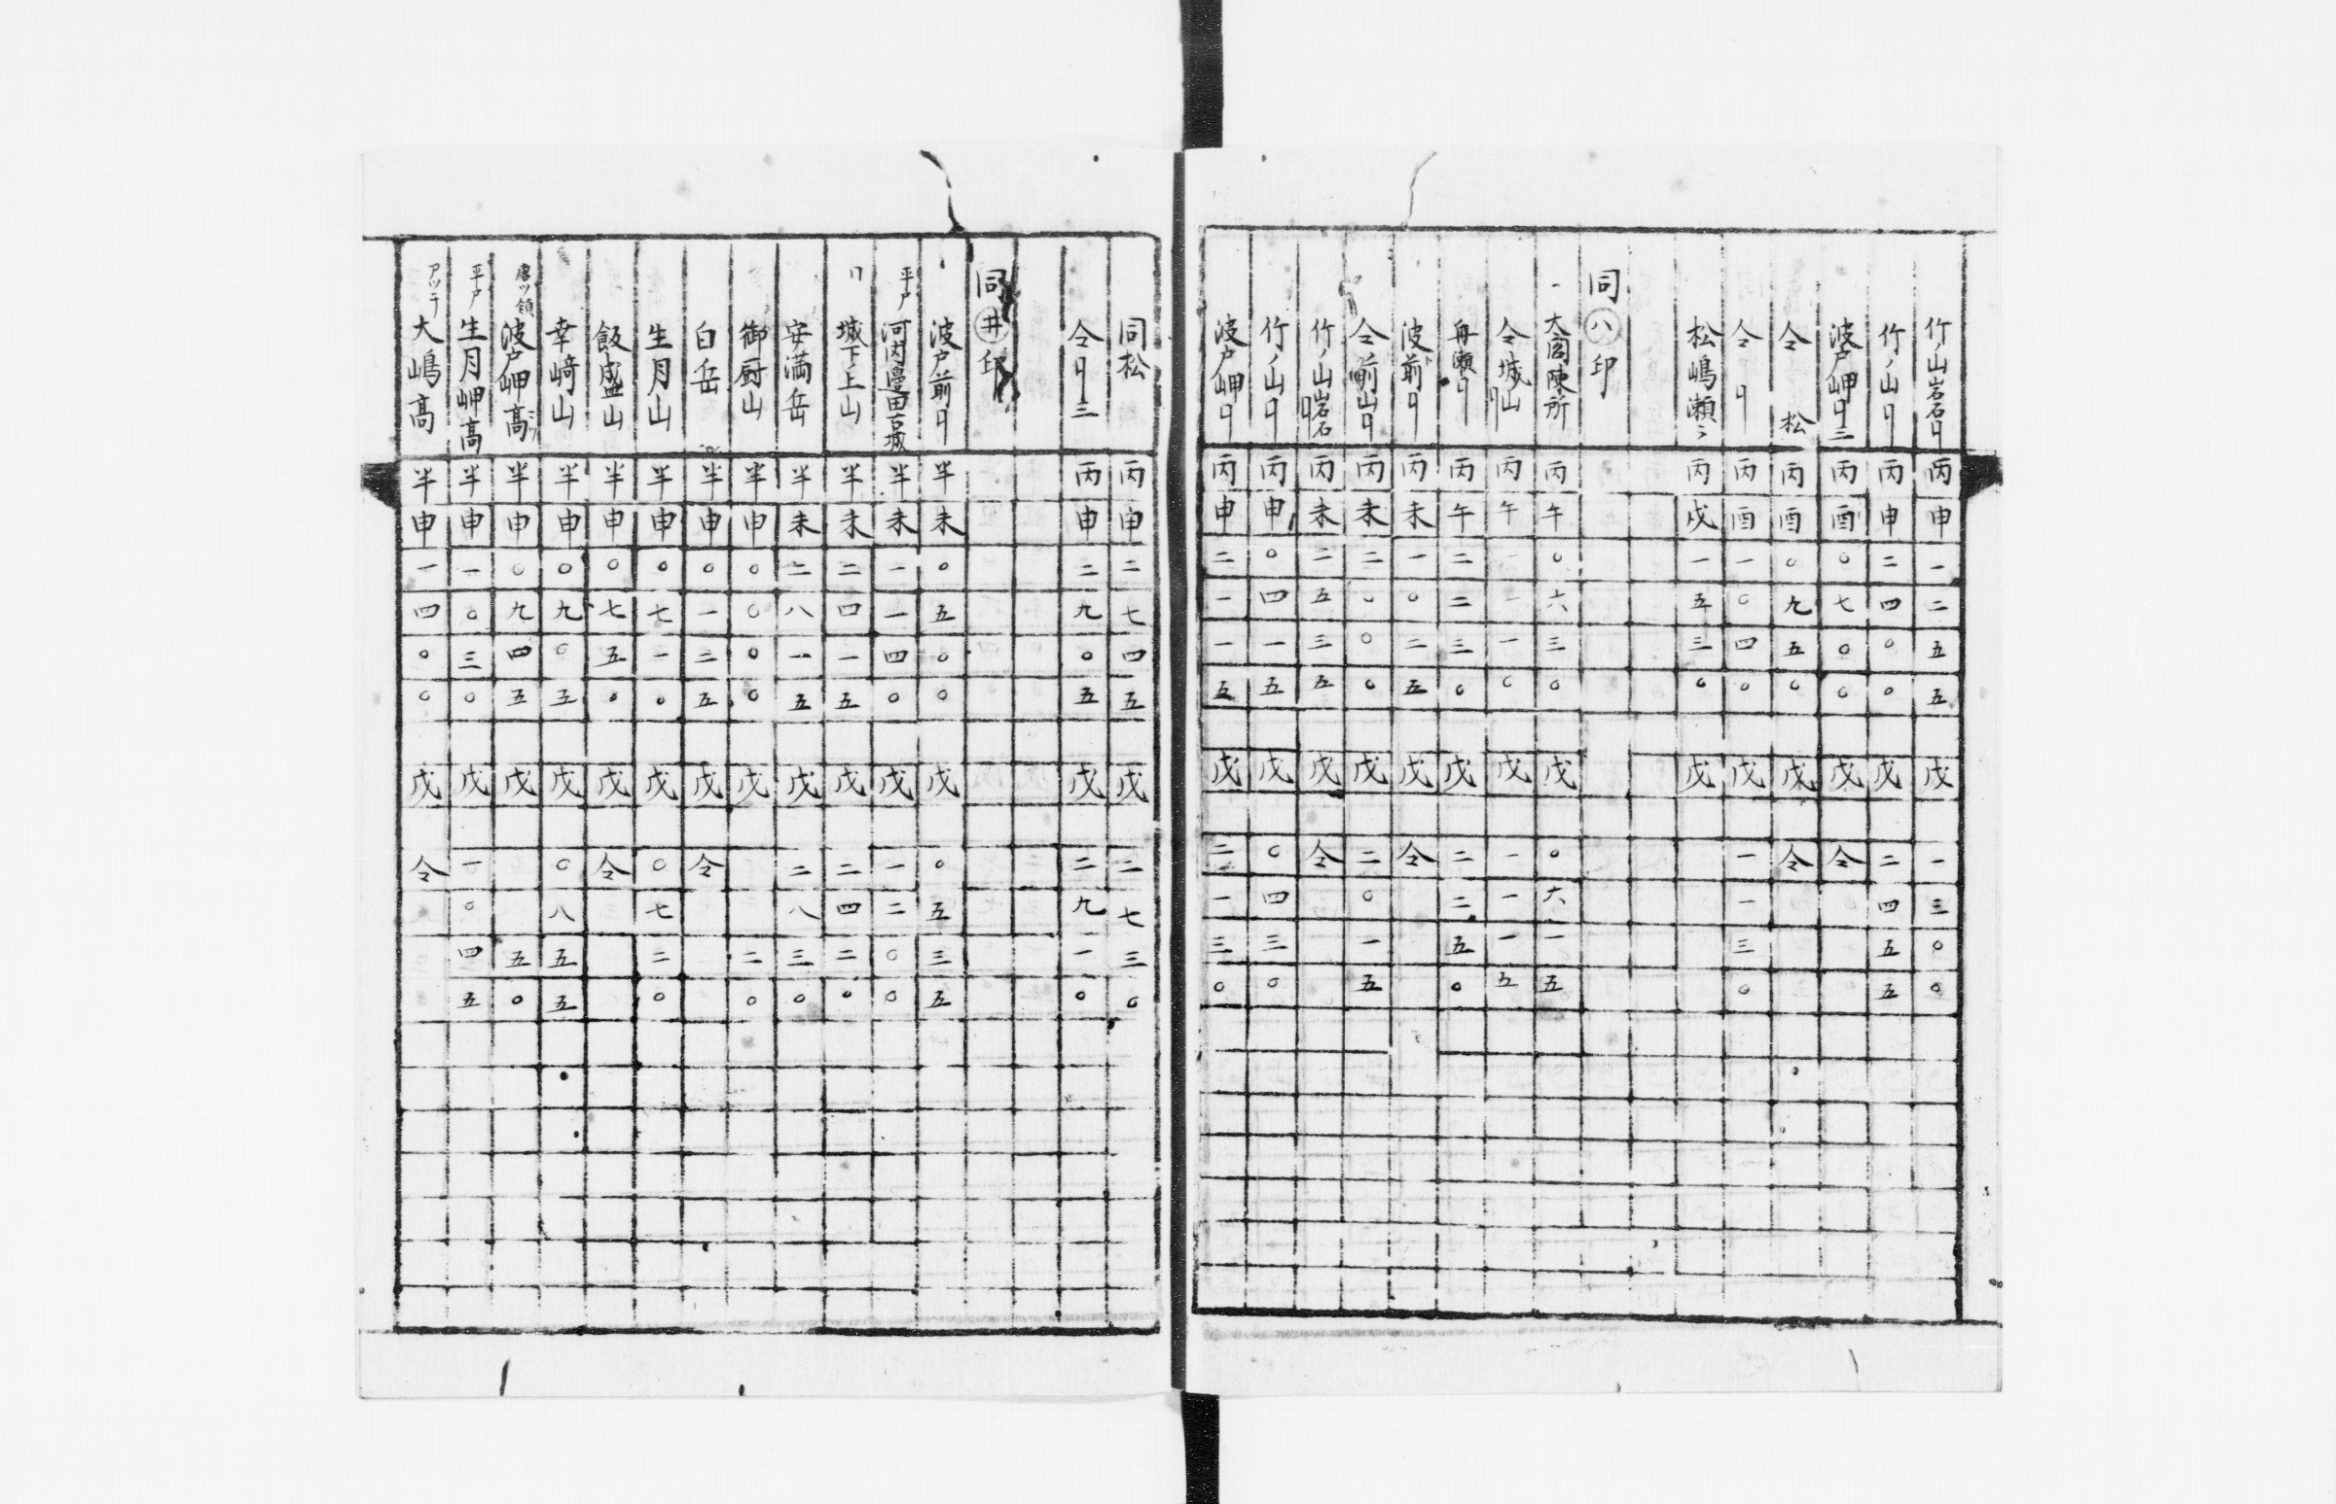 竹ノ山岩石り 丙申一二五五 戊 一三〇〇
竹ノ山り 丙申二四〇〇 戊 二四五五
波戸岬り三 丙酉〇七〇〇 戊 仝
仝 松 丙酉〇九五〇 戊 仝
仝 り 丙酉一〇四〇 戊 一一三〇
松嶋瀬 丙戌一五三〇 戊
同㊇印
一 大閤陳所 丙午〇六三〇 戊 〇六一五
仝城山り 丙午一一一〇 戊 一一一五
舟瀬り 丙午二二三〇 戊 二二五〇
波前り 丙未一〇二五 戊 仝
仝前山り 丙未二〇〇〇 戊 二〇一五
竹ノ山岩石り 丙未二五三五 戊 仝
竹ノ山り 丙申〇四一五 戊 〇四三〇
波戸岬り 丙申二一一五 戊 二一三〇
同松 丙申二七四五 戊 二七三〇
仝り三 丙申二九〇五 戊 二九一〇
同井印
波戸前り 半未〇五〇〇 戊 〇五三五
平戸 河内邉田古城 半未一一四〇 戊 一二〇〇
〃 城下ノ上山 半未二四一五 戊 二四二〇
安満岳 半未二八一五 戊 二八三〇
御厨山 半申〇〇〇〇 戊 二〇
白岳 半申〇一二五 戊 仝
生月山 半申〇七一〇 戊 〇七二〇
飯盛山 半申〇七五〇 戊 仝
幸﨑山 半申〇九〇五 戊 〇八五五
唐ツ領 波戸岬高 半申〇九四五 戊 五〇
平戸 生月岬高 半申一〇三〇 戊 一〇四五
アツチ 大嶋高 半申一四〇〇 戊 仝